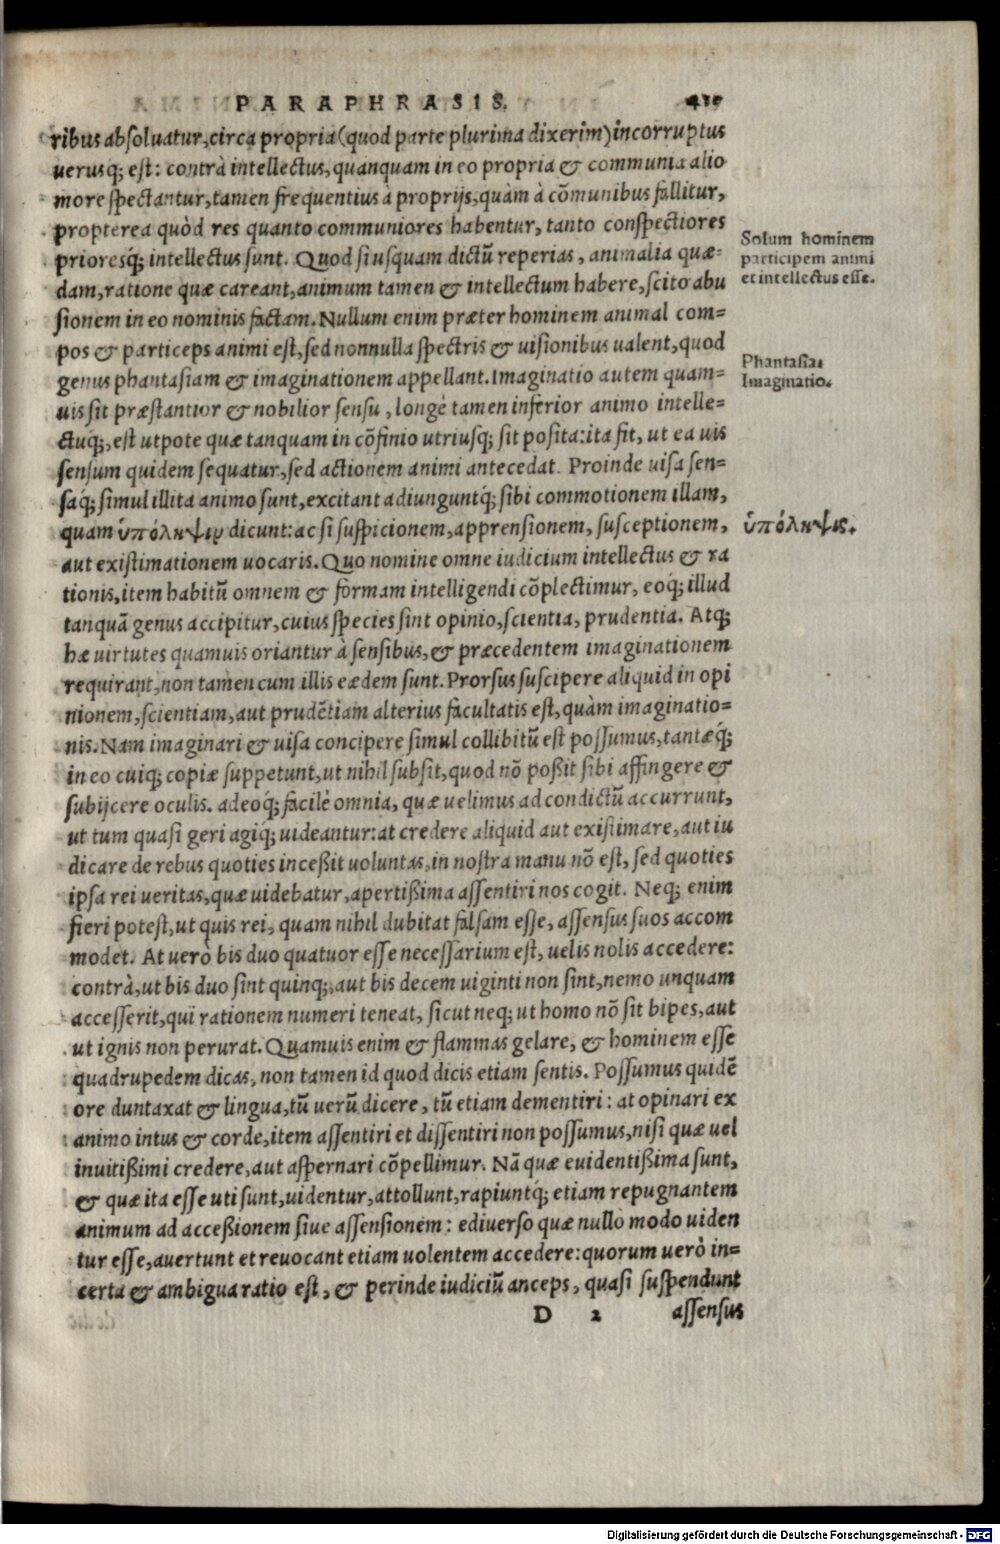 PARAPHRASIS.
ribus absoluatur, circa propria (quod parte plurima dixerim) incorruptus
uerusq́; est: contrà intellectus, quanquam in eo propria & communia alio
more spectantur, tamen frequentius à proprijs, quàm à cõmunibus fallitur,
propterea quòd res quanto communiores habentur, tanto conspectiores
prioresq́; intellectus sunt. Quod si usquam dictũ reperias, animalia quæ-
dam, ratione quæ careant, animum tamen & intellectum habere, scito abu
sionem in eo nominis factam. Nullum enim præter hominem animal com=
pos & particeps animi est, sed nonnulla spectris & uisionibus ualent, quod
genus phantasiam & imaginationem appellant. Imaginatio autem quam=
uis sit præstantior & nobilior sensu, longè tamen inferior animo intelle=
ctuq́;, est utpote quæ tanquam in cõfinio utriusq; sit posita: ita fit, ut ea uis
sensum quidem sequatur, sed actionem animi antecedat. Proinde uisa sen=
saq́; simul illita animo sunt, excitant adiunguntq́; sibi commotionem illam,
quam ὑπόληψιν dicunt: ac si suspicionem, apprensionem, susceptionem,
aut existimationem uocaris. Quo nomine omne iudicium intellectus & ra
tionis, item habitũ omnem & formam intelligendi cõplectimur, eoq; illud
tanquã genus accipitur, cuius species sint opinio, scientia, prudentia. Atq;
hæ uirtutes quamuis oriantur à sensibus, & præcedentem imaginationem
requirant, non tamen cum illis eædem sunt. Prorsus suscipere aliquid in opi
nionem, scientiam, aut prudẽtiam alterius facultatis est, quàm imaginatio=
nis. Nam imaginari & uisa concipere simul collibitũ est possumus, tantæq́;
in eo cuiq; copiæ suppetunt, ut nihil subsit, quod nõ poßit sibi affingere &
subijcere oculis. adeoq́; facilè omnia, quæ uelimus ad condictũ accurrunt,
ut tum quasi geri agiq́; uideantur: at credere aliquid aut existimare, aut iu
dicare de rebus quoties inceßit uoluntas, in nostra manu nõ est, sed quoties
ipsa rei ueritas, quæ uidebatur, apertißima assentiri nos cogit. Neq; enim
fieri potest, ut quis rei, quam nihil dubitat falsam esse, assensus suos accom
modet. At uerò bis duo quatuor esse necessarium est, uelis nolis accedere:
contrà, ut bis duo sint quinq;, aut bis decem uiginti non sint, nemo unquam
accesserit, qui rationem numeri teneat, sicut neq; ut homo nõ sit bipes, aut
ut ignis non perurat. Quamuis enim & flammas gelare, & hominem esse
quadrupedem dicas, non tamen id quod dicis etiam sentis. Possumus quidẽ
ore duntaxat & lingua, tũ uerũ dicere, tũ etiam dementiri: at opinari ex
animo intus & corde, item assentiri et dissentiri non possumus, nisi quæ uel
inuitißimi credere, aut aspernari cõpellimur. Nã quæ euidentißima sunt,
& quæ ita esse uti sunt, uidentur, attollunt, rapiuntq́; etiam repugnantem
animum ad acceßionem siue assensionem: ediuerso quæ nullo modo uiden
tur esse, auertunt et reuocant etiam uolentem accedere: quorum uerò in=
certa & ambigua ratio est, & perinde iudiciũ anceps, quasi suspendunt
D 2 assensus
Solum hominem
participem animi
et intellectus esse.
Phantasia:
Imaginatio.
ὑπόληψις.
Digitalisierung gefördert durch die Deutsche Forschungsgemeinschaft - DFG